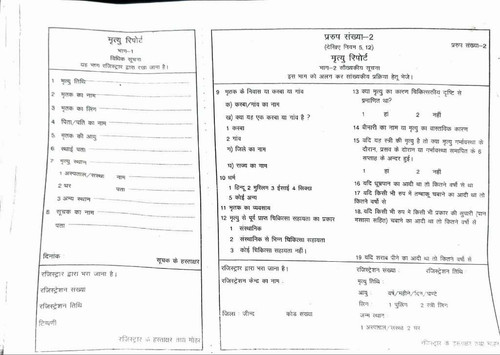 मृत्यु रिपोर्ट
भाग-1
विधिक सूचना
यह भाग रजिस्ट्रार द्वारा रखा जाना है।
1 मृत्यु तिथि
2 मृतक का नाम
3 मृतक का लिंग
4 पिता/पति का नाम
5 मृतक की आयु
6 स्थाई पता
7 मृत्यु स्थान
1 अस्पताल/संस्था नाम
2 घर पता
3 अन्य स्थान
8 सूचक का नाम
पता
दिनांक
सूचक के हस्ताक्षर
रजिस्ट्रार द्वारा भरा जाना है।
रजिस्ट्रेशन संख्या
रजिस्ट्रेशन तिथि
टिप्पणी
रजिस्ट्रार के हस्ताक्षर तथा मोहर
प्ररुप संख्या-2
(देखिए नियम 5, 12)
प्ररुप संख्या-2
मृत्यु रिपोर्ट
भाग-2 सांख्यकीय सूचना
इस भाग को अलग कर सांख्यकीय प्रक्रिया हेतु भेजे।
9 मृतक के निवास या कस्बा या गांव
क) कस्बा/गांव का नाम
ख) क्या यह एक कस्बा या गांव है ?
1 कस्बा
2 गांव
ग) जिले का नाम
घ) राज्य का नाम
10 धर्म
1 हिन्दू 2 मुस्लिम 3 ईसाई 4 सिक्ख
5 कोई अन्य
11 मृतक का व्यवसाय
12 मृत्यु से पूर्व प्राप्त चिकित्सा सहायता का प्रकार
1 संस्थानिक
2 संस्थानिक से भिन्न चिकित्सा सहायता
3 कोई चिकित्सा सहायता नहीं।
13 क्या मृत्यु का कारण चिकित्सकीय दृष्टि से
प्रमाणित था?
1 हां 2 नहीं
14 बीमारी का नाम या मृत्यु का वास्तविक कारण
15 यदि यह स्त्री की मृत्यु है तो क्या मृत्यु गर्भावस्था के
दौरान, प्रसव के दौरान या गर्भावस्था समाप्ति के 6
सप्ताह के अन्दर हुई।
1 हां 2 नहीं
16 यदि धूम्रपान का आदी था तो कितने वर्षों से था
17 यदि किसी भी रुप में तम्बाकू चबाने का आदी था तो
कितने वर्षों से
18. यदि किसी भी रुप मे किसी भी प्रकार की सुपारी (पान
मसाला सहित) चबाने का आदी था तो कितने वर्षों से
19 यदि शराब पीने का आदी था तो कितने वर्षों से
रजिस्ट्रार द्वारा भरा जाना है।
रजिस्ट्रेशन केन्द्र का नाम।
जिला : जीन्द कोड संख्या
रजिस्ट्रेशन संख्या रजिस्ट्रेशन तिथि
मृत्यु तिथि :
आयु : वर्ष/महीने/दिन/घण्टे
लिंग : 1 पुलिंग 2 स्त्री लिंग
स्थान
1 अस्पताल/संस्था 2 घर
रजिस्ट्रार के हस्ताक्षर तथा मोहर